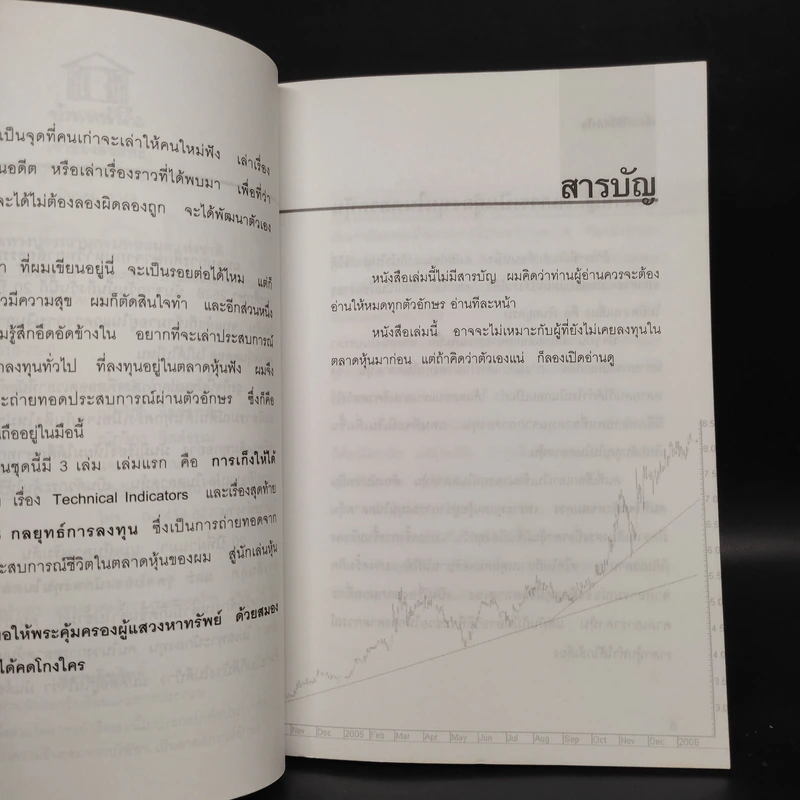 เป็นจุดที่คนเก่าจะเล่าให้คนใหม่ฟัง เล่าเรื่อง
นอดีต หรือเล่าเรื่องราวที่ได้พบมา เพื่อที่ว่า
จะได้ไม่ต้องลองผิดลองถูก จะได้พัฒนาตัวเอง
ที่ผมเขียนอยู่นี่ จะเป็นรอยต่อได้ไหม แต่ก็
วมีความสุข ผมก็ตัดสินใจทำ และอีกส่วนหนึ่ง
มรู้สึกอึดอัดข้างใน อยากที่จะเล่าประสบการณ์
กลงทุนทั่วไป ที่ลงทุนอยู่ในตลาดหุ้นฟัง ผมจึง
ะถ่ายทอดประสบการณ์ผ่านตัวอักษร ซึ่งก็คือ
ถืออยู่ในมือนี้
นชุดนี้มี 3 เล่ม เล่มแรก คือ การเก็งให้ได้
เรื่อง Technical Indicators และเรื่องสุดท้าย
กลยุทธ์การลงทุน ซึ่งเป็นการถ่ายทอดจาก
ะสบการณ์ชีวิตในตลาดหุ้นของผม สู่นักเล่นหุ้น
อให้พระคุ้มครองผู้แสวงหาทรัพย์ ด้วยสมอง
ได้คดโกงใคร
สารบัญ
หนังสือเล่มนี้ไม่มีสารบัญ ผมคิดว่าท่านผู้อ่านควรจะต้อง
อ่านให้หมดทุกตัวอักษร อ่านทีละหน้า
หนังสือเล่มนี้ อาจจะไม่เหมาะกับผู้ที่ยังไม่เคยลงทุนใน
ตลาดหุ้นมาก่อน แต่ถ้าคิดว่าตัวเองแน่ ก็ลองเปิดอ่านดู
8.5
7.0
6.0
5.5
5.0
4.5
3.0
Nov Dec 2005 Feb Mar Apr May Jun Jul Aug Sep Oct Nov Dec 2006